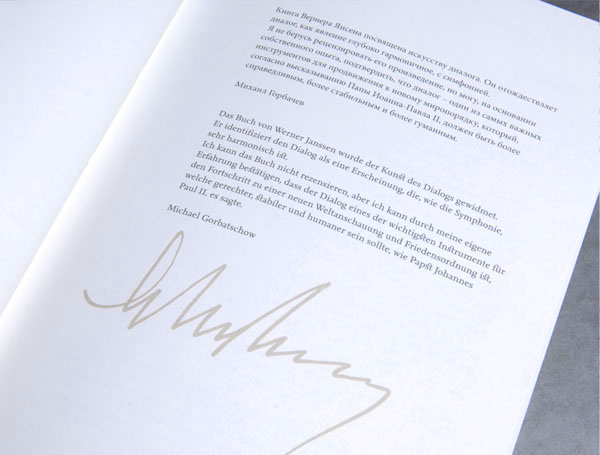 Книга Вернера Янсена посвящена искусству диалога. Он отождествляет
диалог, как явление глубоко гармоничное, с симфонией.
Я не берусь рецензировать его произведение, но могу, на основании
собственного опыта, подтвердить, что диалог – один из самых важных
инструментов для продвижения к новому миропорядку, который,
согласно высказыванию Папы Иоанна-Павла II, должен быть более
справедливым, более стабильным и более гуманным.
Михаил Горбачев
Das Buch von Werner Janssen wurde der Kunst des Dialogs gewidmet.
Er identifiziert den Dialog als eine Erscheinung, die, wie die Symphonie,
sehr harmonisch ist.
Ich kann das Buch nicht rezensieren, aber ich kann durch meine eigene
Erfahrung bestätigen, dass der Dialog eines der wichtigsten Instrumente für
den Fortschritt zu einer neuen Weltanschauung und Friedensordnung ist,
welche gerechter, stabiler und humaner sein sollte, wie Papst Johannes
Paul II. es sagte.
Michael Gorbatschow